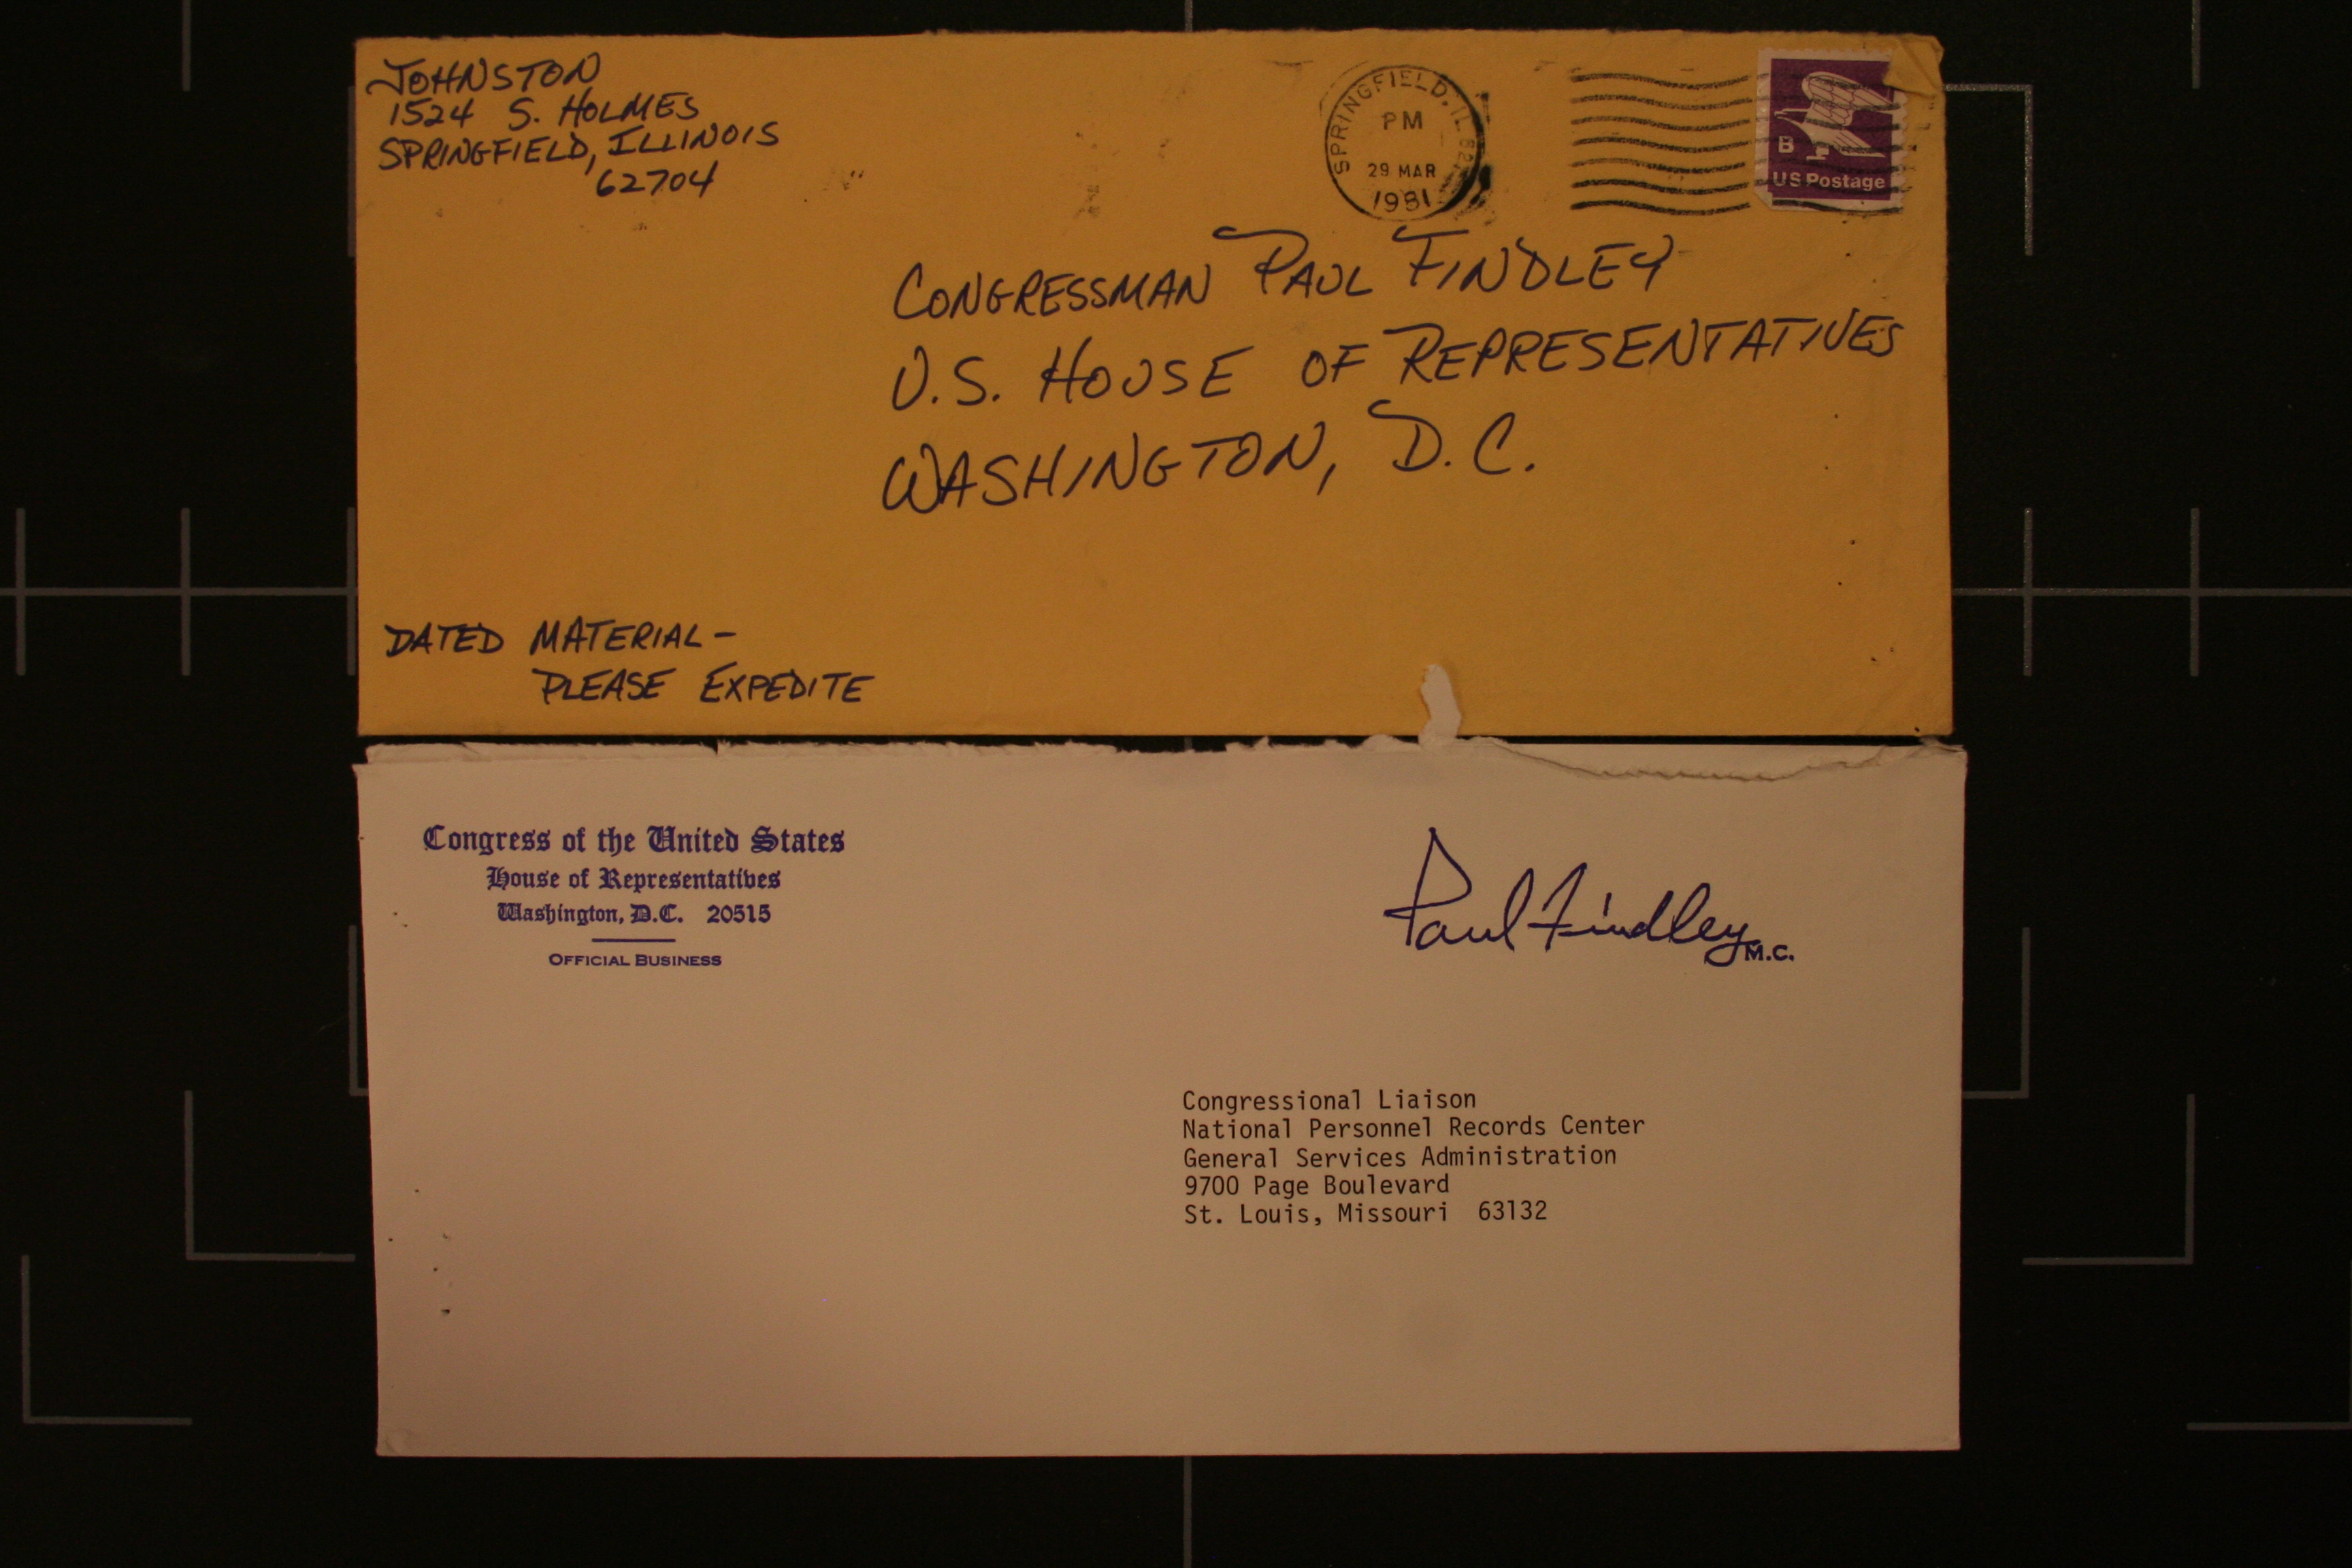 JOHNSTON
1524 S. HOLMES
SPRINGFIELD, ILLINOIS
62704
SPRINGFIELD, IL
PM
29 MAR
1981
B
US Postage
CONGRESSMAN PAUL FINDLEY
U.S. HOUSE OF REPRESENTATIVES
WASHINGTON, D.C.
DATED MATERIAL-
PLEASE EXPEDITE
Congress of the United States
House of Representatives
Washington, D.C. 20515
OFFICIAL BUSINESS
Paul Findley M.C.
Congressional Liaison
National Personnel Records Center
General Services Administration
9700 Page Boulevard
St. Louis, Missouri 63132